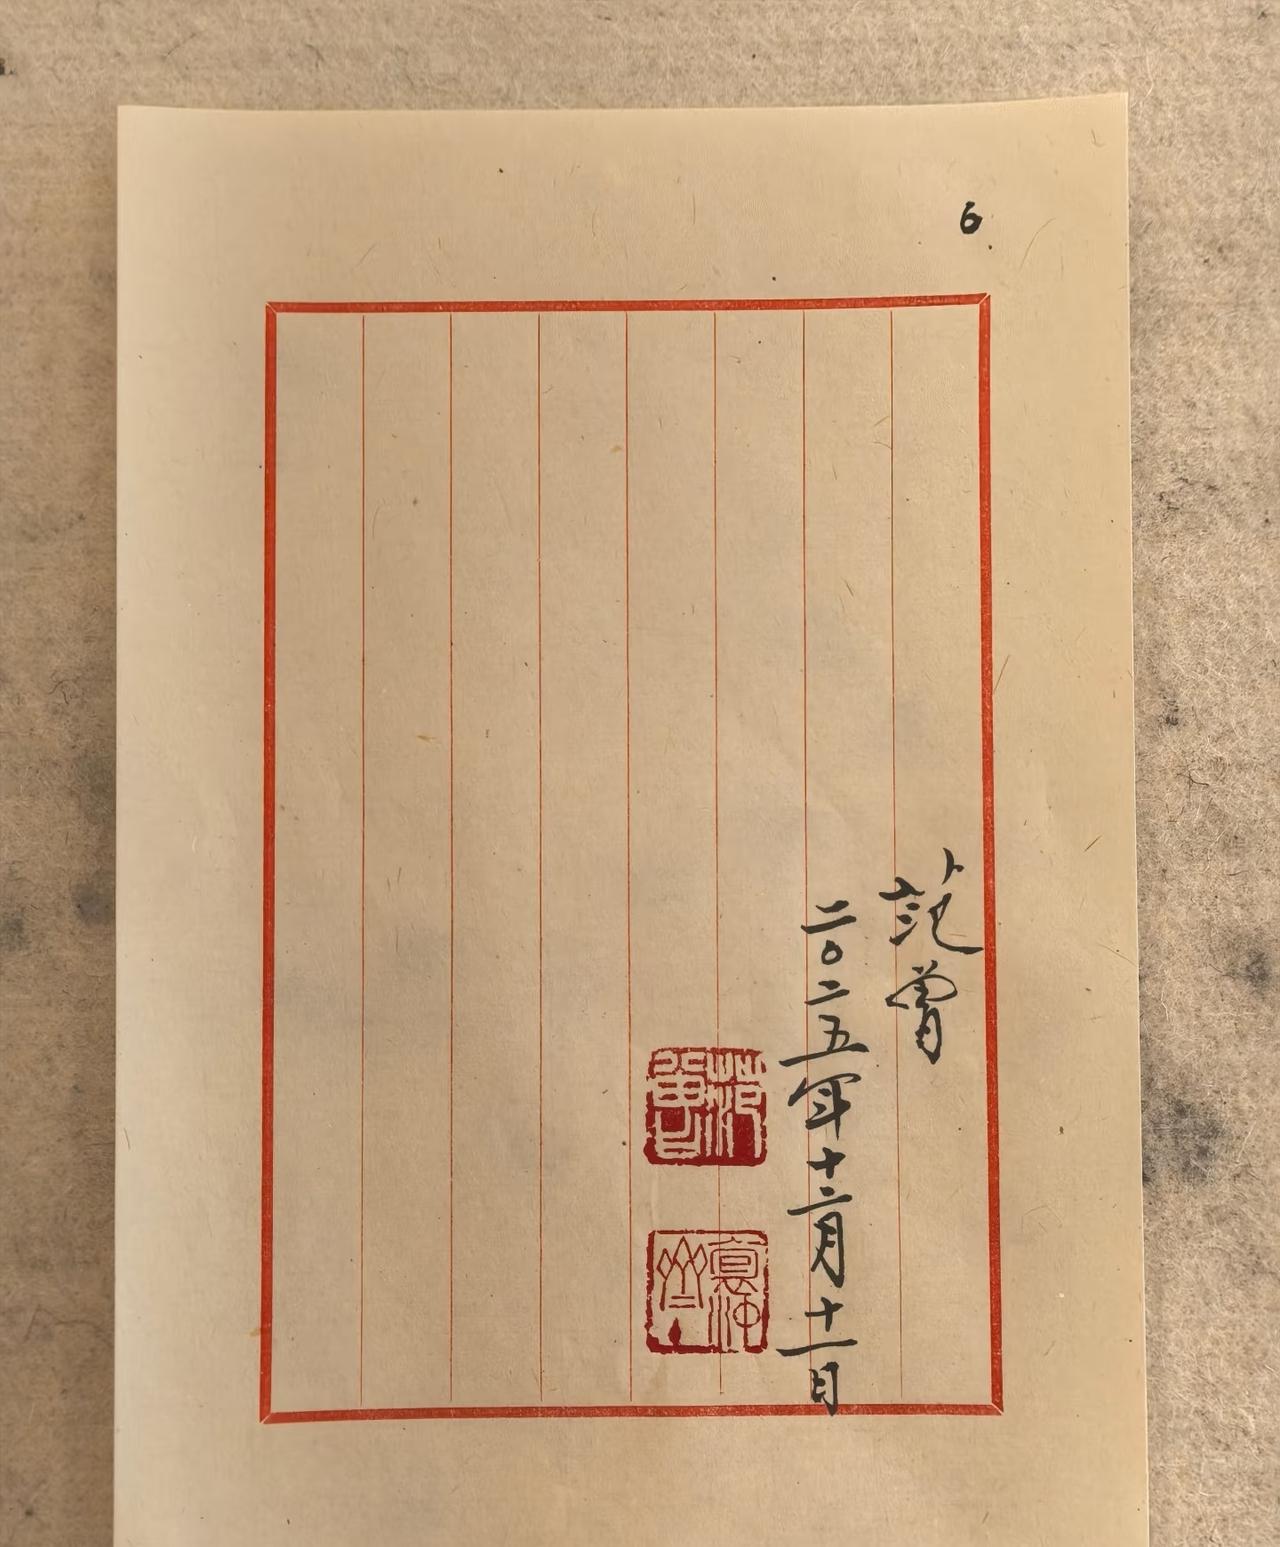 6
范曾
二〇二五年十二月十一日
范曾